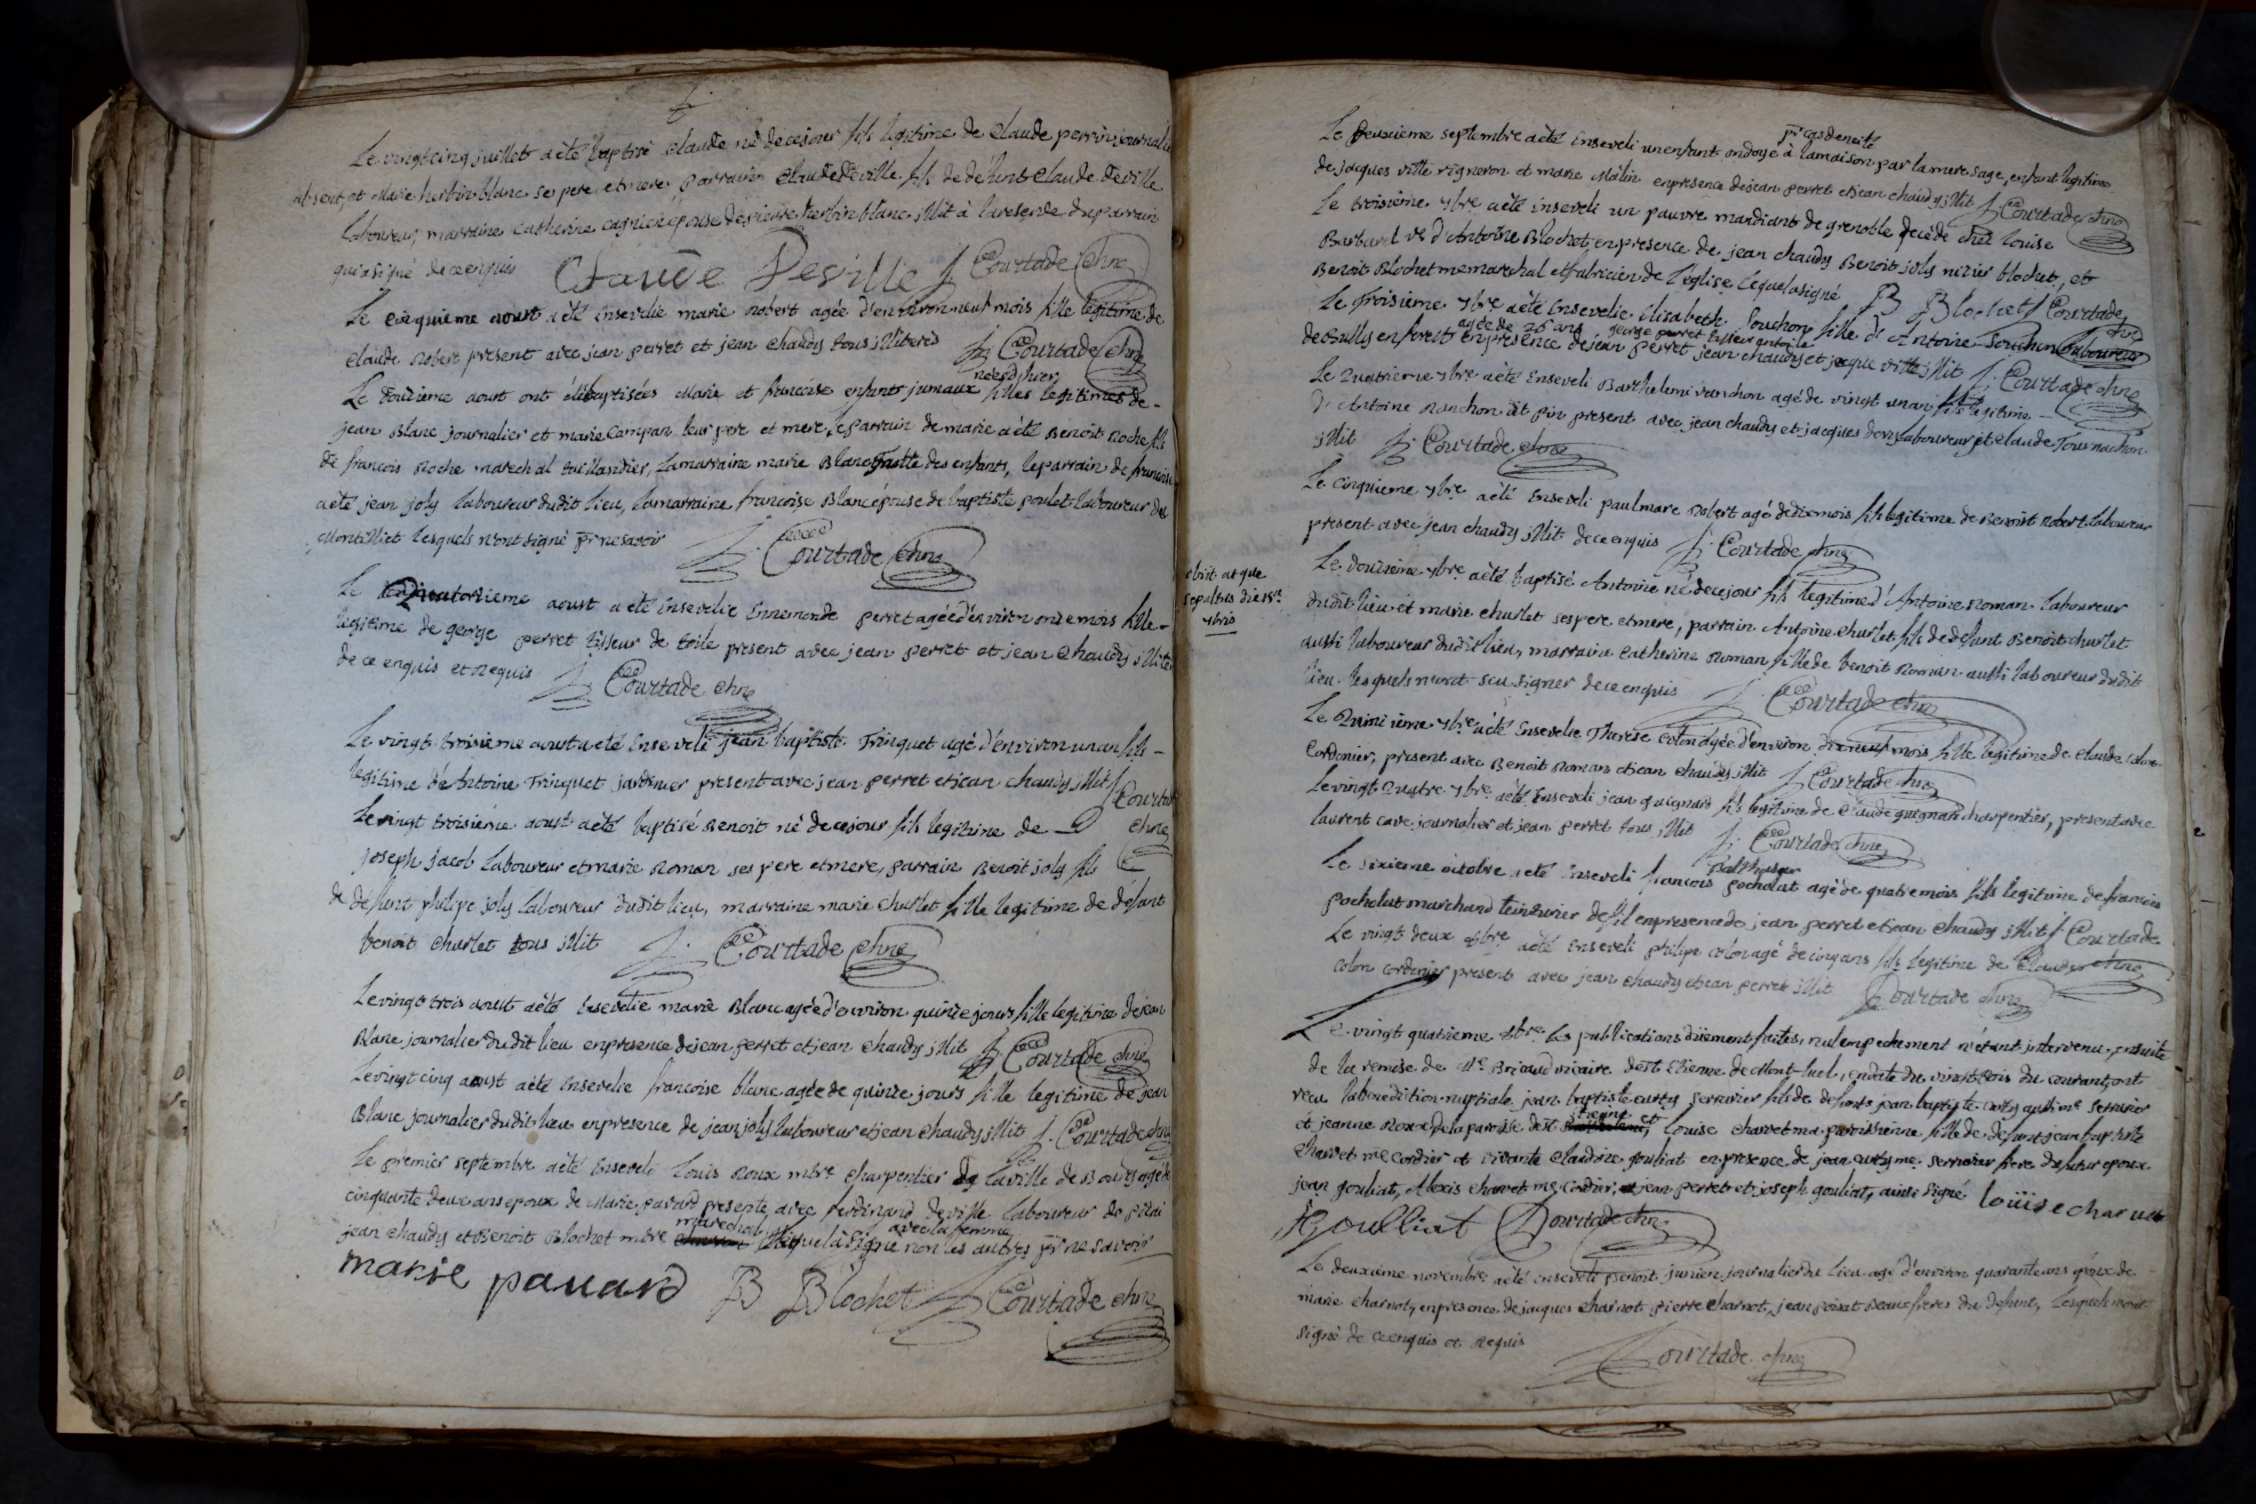 Le vingt cinq juillet a èté baptisé claude né de cejour fils legitime de claude perrin journalier
absent, et Marie herbin blanc ses pere et mere parrain claude deville fils de défunt claude deville
laboureur, marraine catherine cagnicé épouse de pierre herbin blanc, illit à la reserve du parrain
qui a signé de ce enquis Claude Deville f. Courtade chne
Le cinquieme aoust a èté Ensevelie marie robert agée d'environ neuf mois fille legitime de
claude robert present avec jean perret et jean chaudy tous illiterés f. Courtade chne
nées d'hier
Le douzieme aoust ont été baptisées Marie et francoise enfants jumaux filles legitimes de
jean Blanc journalier et marie Campan leur pere et mere, le parrain de marie a èté Benoit Roche fils
de francois Roche marechal taillandier, la marraine marie Blanc tante des enfants, le parrain de francoise
a èté jean joly laboureur dudit lieu, la marraine francoise Blanc épouse de baptiste poulet laboureur de
Montelliet lesquels n'ont signé pr ne savoir f. Courtade chne
Le Quatorzieme aoust a èté Ensevelie Ennemonde perret agée d'environ onze mois fille
legitime de george perret tisseur de toile present avec jean perret et jean chaudy illite
de ce enquis et requis f. Courtade chne
Le vingt troisième aoust a èté Enseveli jean baptiste Trinquet agé d'environ un an fils
legitime de Antoine Trinquet jardinier present avec jean perret et jean chaudy illit f. Courtade
Le vingt troisième aoust a èté baptisé Benoit né de cejour fils legitime de chne
joseph jacob laboureur et marie Roman ses pere et mere, parrain Benoit joly fils
de défunt philipe joly laboureur dudit lieu, marraine marie churlet fille legitime de défunt
benoit churlet tous illit f. Courtade chne
Le vingt trois aoust a èté Ensevelie marie Blanc agée d'environ quinze jours fille legitime de jean
Blanc journalier dudit lieu en presence de jean perret et jean chaudy illit f. Courtade chne
Le vingt cinq aoust a èté Ensevelie francoise blanc agée de quinze jours fille legitime de jean
Blanc journalier dudit lieu en presence de jean joly laboureur et jean chaudy illit f. Courtade chne
Le premier septembre a èté Enseveli Louis Roux mtre charpentier de la ville de Bourg agé de
cinquante deux ans epoux de Marie pavard presente, avec ferdinand deville laboureur de pizai
marechal avec la femme
jean chaudy et Benoit Blochet mtre lequel a signé non les autres pr ne savoir
marie pavard B Blochet f. Courtade chne
pr cas de necité
Le deuxieme septembre a èté Enseveli un enfant ondoyé à la maison par la mere sage, enfant legitime
de jacques ville vigneron et marie Málin en presence de jean perret et jean chaudy illit f. Courtade chne
Le troisième 7bre a èté Enseveli un pauvre mandiant de grenoble decédé chez louise
Barbarel ve d'Antoine Blochet, en presence de jean chaudy Benoit joly nizier blochet, et
Benoit Blochet me marechal et fabricien de l'église lequel a signé B Blochet f. Courtade
Le troisième 7bre a èté Ensevelie Elisabeth Souchon fille d'Antoine Souchon laboureur chne
agée de 26 ans george perret tisseur en toile
de Sully en forest en presence de jean perret jean chaudy et jaque ville illit f. Courtade chne
Le Quatrieme 7bre a èté Enseveli Barthelemi ranchon agé de vingt un an fils legitime
d'Antoine Ranchon dit pin present avec jean chaudy et jacques laboureur et claude Tournachon
illit f. Courtade chne
Le cinquieme 7bre a èté Enseveli paul marc Robert agé de dix mois fils legitime de Benoit Robert laboureur
present avec jean chaudy illit de ce enquis f. Courtade chne
obiit atque
sepultus die 18a
7bris
Le douzieme 7bre a èté baptisé Antoine né de cejour fils legitime d'Antoine Roman laboureur
dudit lieu et marie churlet ses pere et mere, parrain Antoine churlet fils de defunt Benoit churlet
aussi laboureur dudit lieu, marraine catherine Roman fille de benoit Roman aussi laboureur dudit
lieu lesquels n'ont scu signer de ce enquis f. Courtade chne
Le Quinzième 7bre a èté Ensevelie Therese colon agée d'environ dix neuf mois fille legitime de claude colon
Cordonier, present avec Benoit Roman et jean chaudy illit f. Courtade chne
Le vingt Quatre 7bre a èté Enseveli jean guignard fils legitime de claude guignard charpentier, present avec
laurent cave journalier et jean perret tous illit f. Courtade chne
Balthasar
Le sixieme octobre a èté Enseveli francois pocholat agé de quatre mois fils legitime de francois
pocholat marchand teinturier de fil en presence de jean perret et jean chaudy illit f. Courtade
Le vingt deux 8bre a èté Enseveli philipe colon agé de cinq ans fils legitime de claude chne
colon cordonier present avec jean chaudy et jean perret illit f. Courtade chne
Le vingt quatrieme 8bre les publications düement faites, nul empechement n'étant intervenu, ensuite
de la remise de Mr Bricaud vicaire de st Etienne de Mont-luel, en date du vingt trois du courant, ont
recu la benediction nuptiale jean baptiste curty serrurier fils de defunts jean baptiste curty aussi me serrurier
Etienne et
et jeanne Roux de la paroisse de st louise charvet ma paroissienne fille de defunt jean baptiste
charvet me cordier et vivante claudine gouliat en presence de jean curty me serrurier frere du futur epoux
jean gouliat, Alexis charvet me cordier, jean perret et joseph gouliat, ainsi signé loüise charuet
JGoulliat f. Courtade chne
Le deuxième novembre a èté enseveli Benoit junien journalier du lieu agé d'environ quarante ans epoux de
marie charnot, en presence de jacques charnot pierre charnot, jean poisat beaux freres du defunt, lesquels n'ont
signé de ce enquis et requis f. Courtade chne